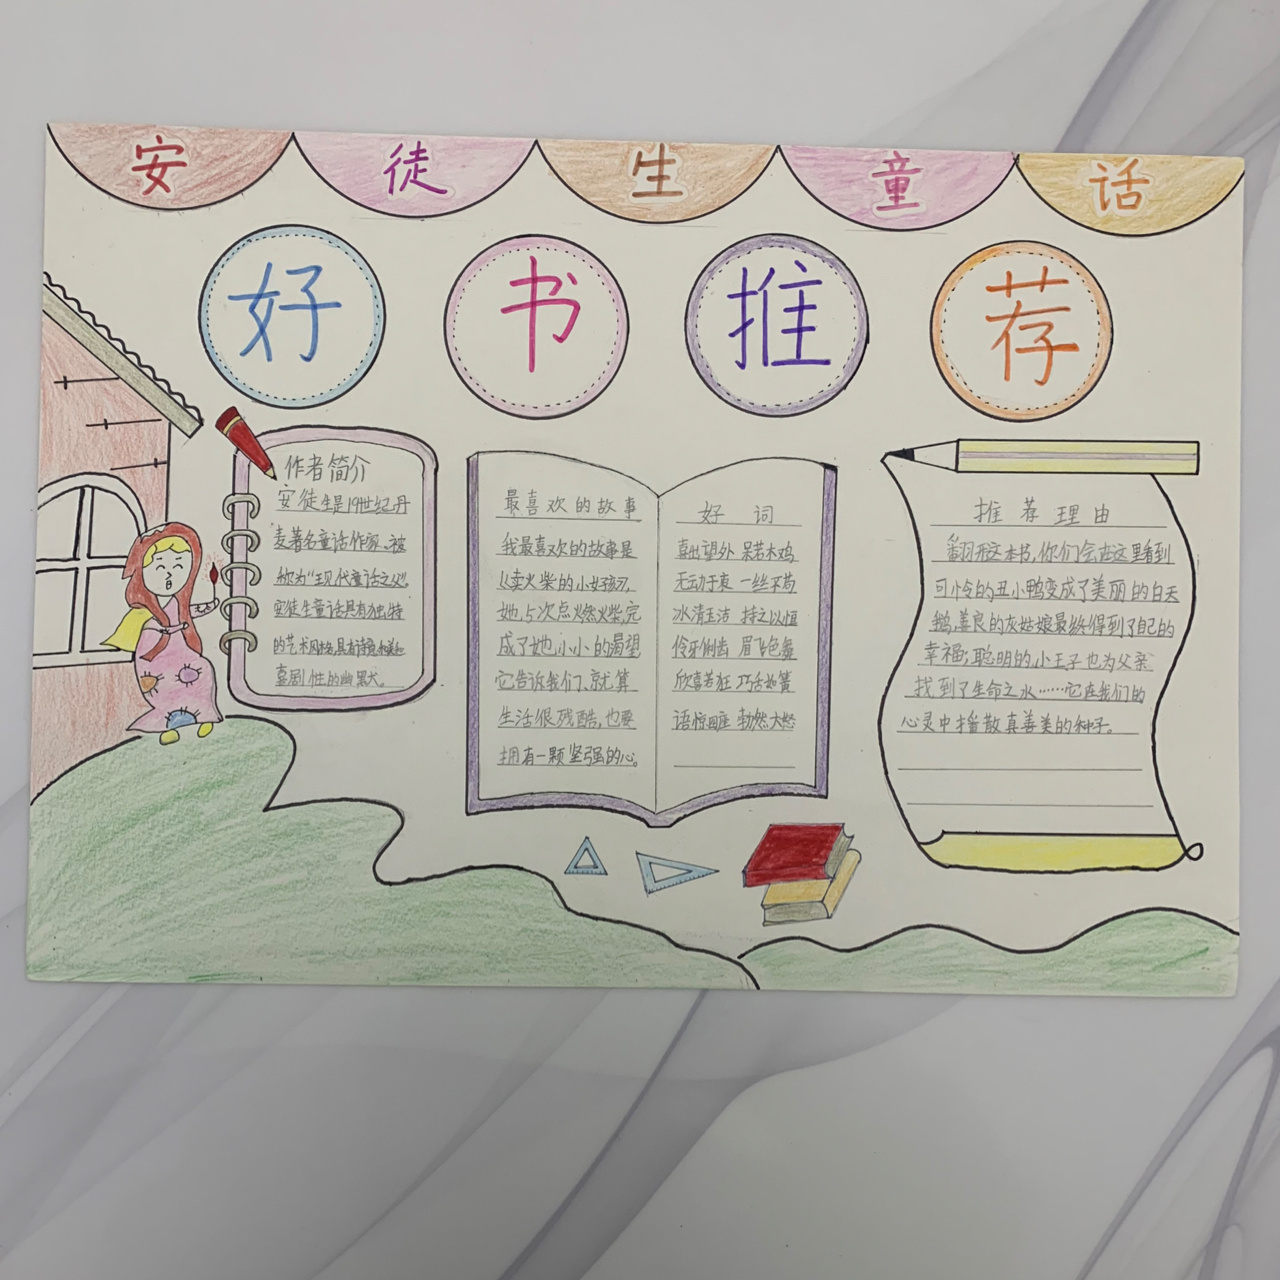 安徒生童话
好书推荐
作者简介
安徒生是19世纪丹
麦著名童话作家、被
称为“现代童话之父”。
安徒生童话具有独特
的艺术风格:具有诗意美和
喜剧性的幽默大。
最喜欢的故事
我最喜欢的故事是
《卖火柴的小女孩》,
她5次点燃火柴,完
成了她小小的渴望
它告诉我们、就算
生活很残酷,也要
拥有一颗坚强的心。
好词
喜出望外 呆若木鸡
无动于衷 一丝不苟
冰清玉洁 持之以恒
伶牙俐齿 眉飞色舞
欣喜若狂 巧舌如簧
语惊四座 勃然大怒
推荐理由
翻开这本书,你们会在这里看到
可怜的丑小鸭变成了美丽的白天
鹅,善良的灰姑娘最终得到了自己的
幸福;聪明的小王子也为父亲
找到了生命之水……它在我们的
心灵中播散真善美的种子。